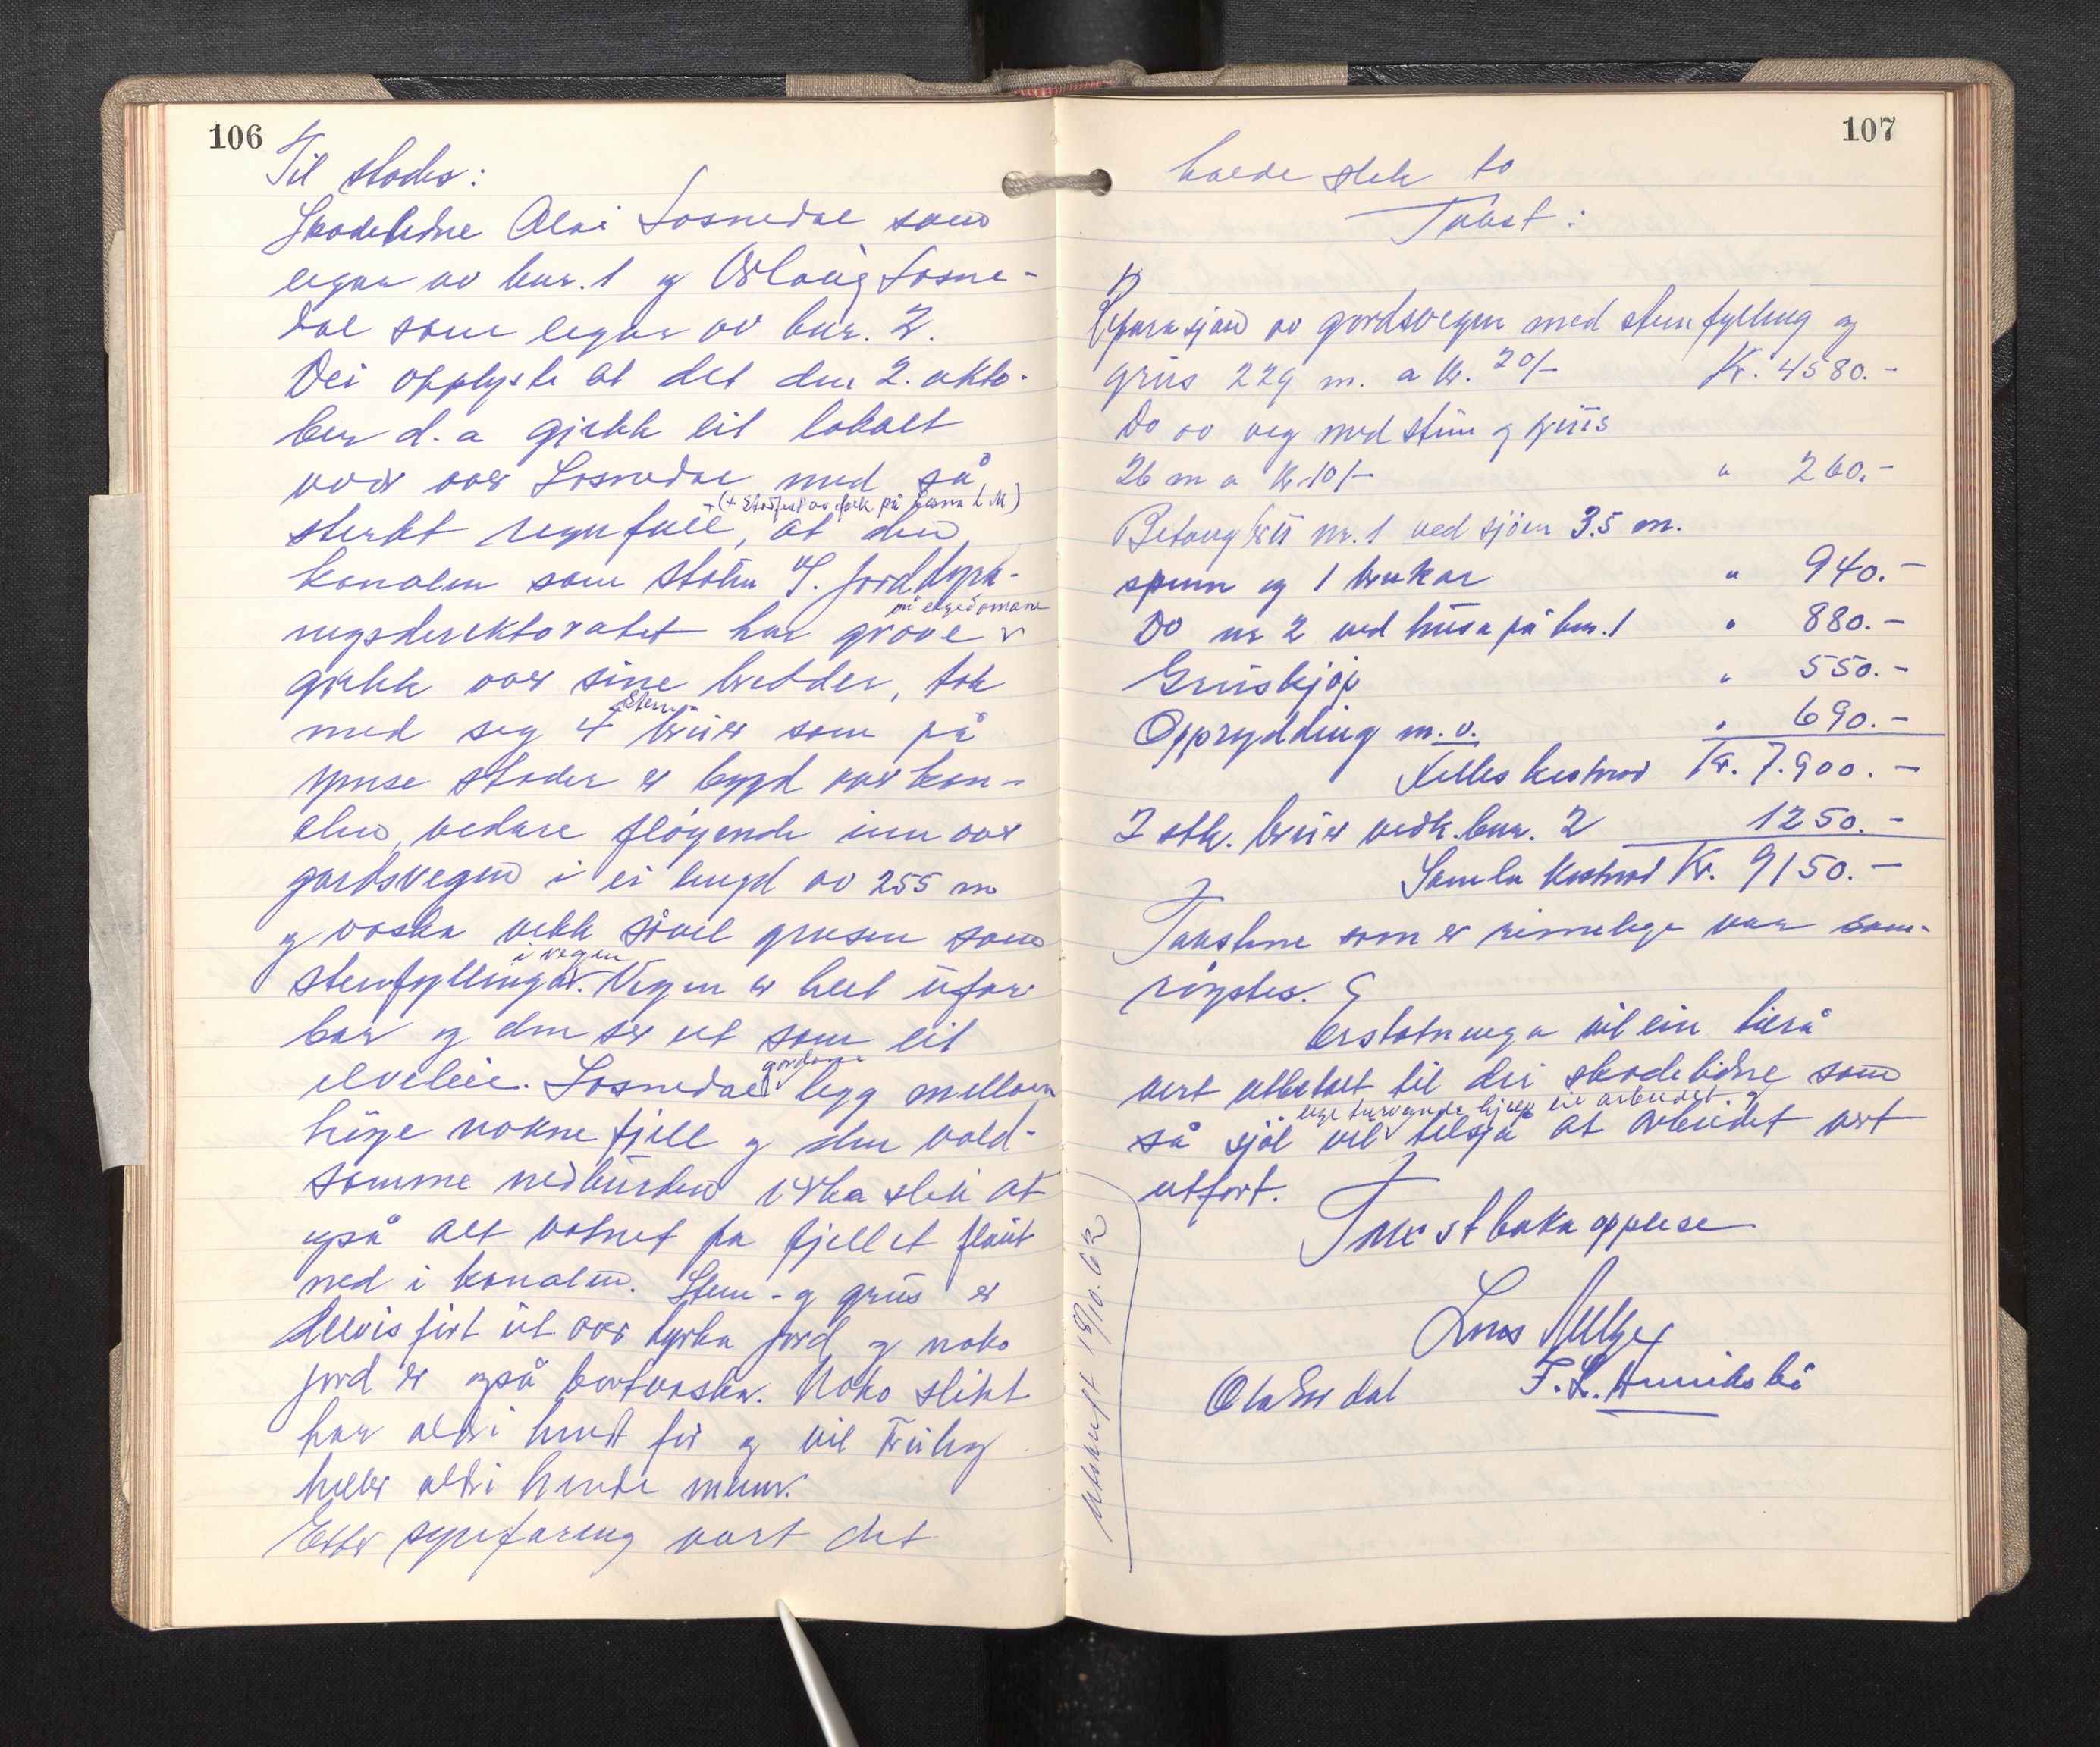 106
Til stades:
Skadelidne Alai Losnedal som
eigar av bnr. 1 og Losne-
dal som eigar av bnr. 2.
Dei opplyste at det den 2. okto-
ber d.a gjekk eit lokalt
over Losnedal med så
sterkt regnfall, at den
kanalen som staten v/ Jorddyrk-
på eigedomane
ingsdirektoratet har grave
gjekk over sine bredder, tok
Stein
med seg 4 bruer som på
ymse stader er bygd over kan-
alen, vidare fløymde inn over
gardsvegen i ei lengd av 255 m
og vaska vekk såvel grusen som
i vegen
steinfyllingar. Vegen er heilt ufar
bar og den ser ut som eit
elveleie. Losnedal
gardane
ligg mellom
høge nakne fjell og den vald-
somme nedbørden verka slik at
også alt vatnet fra fjellet flaut
ned i kanalen. Stein- og grus er
delvis ført ut over dyrka jord og noko
jord er også bortvaska. Noko slikt
har aldri hendt før og vil truleg
heller aldri hende meir.
Etter synfaring vart det
107
halde slik to
Takst:
Reparasjon av gardsvegen med steinfylling og
grus 229 m. a kr. 20/- Kr. 4580.-
Do av veg med stein og grus
26 m a kr. 10/- " 260.-
Betongbru nr. 1 ved sjøen 3.5 m.
spenn og 1 brukar " 940.-
Do nr 2 ved husa på bnr. 1 " 880.-
Gruskjøp " 550.-
Opprydding m.v. " 690.-
Felles kostnad Kr. 7.900.-
2 stk. bruer vedk. bnr. 2 1250.-
Samla kostnad Kr. 9150.-
Takstene som er rimelege var sam-
røystes.
Erstatninga vil ein tilrå
vert utbetalt til dei skadelidne som
leige turvande hjelp til arbeidet og
så sjøl vil tilsjå at arbeidet vert
utført.
Takstboka opplese
Lars
Ola Eredal F. L. Henriksbø
Utskrift 18/10.62